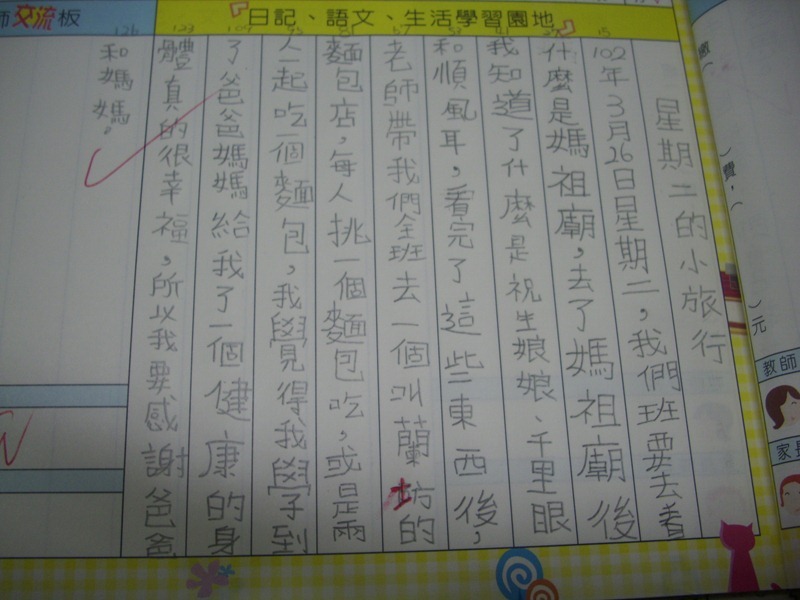 師交流板
『日記、語文、生活學習園地』
星期二的小旅行
102年3月26日星期二,我們班要去看
什麼是媽祖廟,去了媽祖廟後
我知道了什麼是祝生娘娘、千里眼
和順風耳,看完了這些東西後,
老師帶我們全班去一個叫蘭坊的
麵包店,每人挑一個麵包吃,或是兩
人一起吃一個麵包,我覺得我學到
了爸爸媽媽給我了一個健康的身
體真的很幸福,所以我要感謝爸爸
和媽媽。
15
41
53
67
81
95
109
123
126
)元
教師
家長